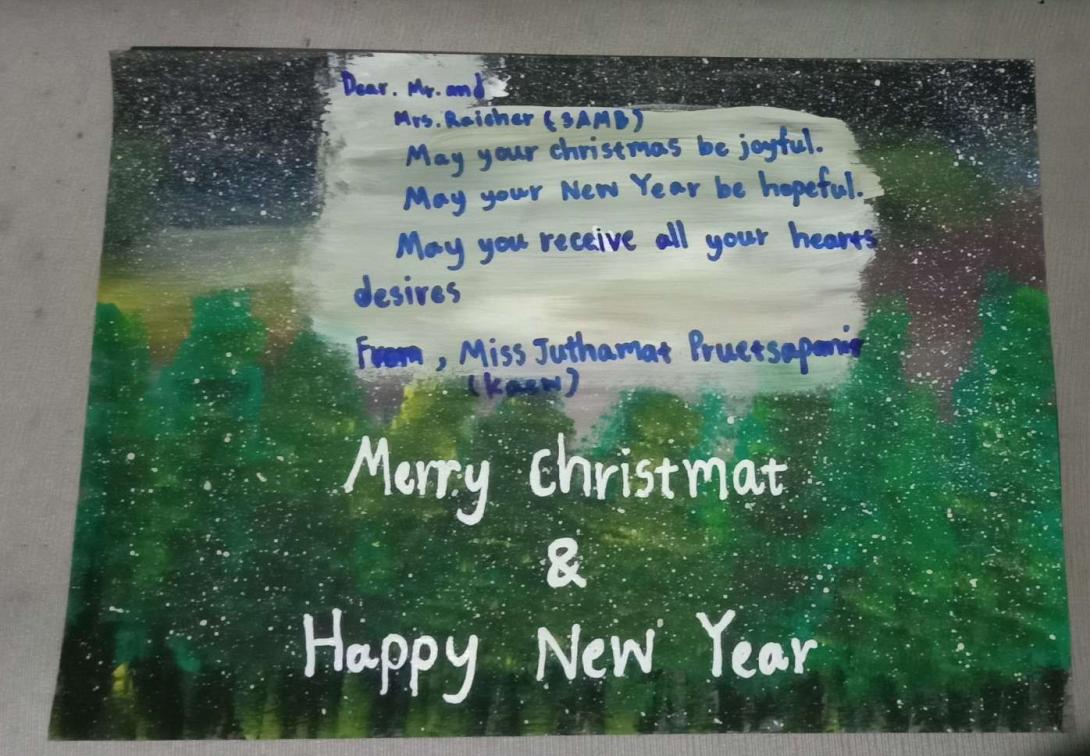 Dear. Mr. and
Mrs. Raicher (3AMB)
May your christmas be joyful.
May your New Year be hopeful.
May you receive all your hearts
desires
From, Miss Juthamat Pruetsapanir
(kaew)
Merry christmat
&
Happy New Year